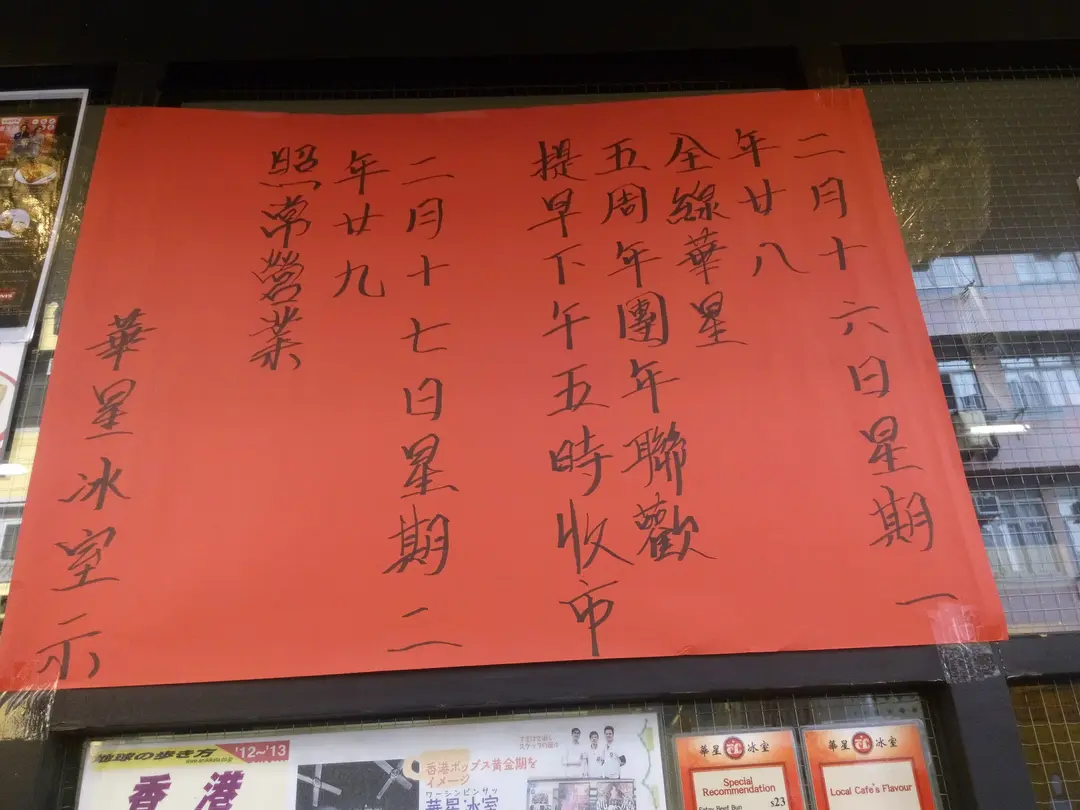 二月十六日星期一
年廿八
全線華星
五周年團年聯歡
提早下午五時收市
二月十七日星期二
年廿九
照常營業
華星冰室示
地球の歩き方
'12~'13
香港
香港ポップス黄金期を
イメージ
ワーシンピンサッ
華星冰室
華星冰室
Special
Recommendation
$23
華星冰室
Local Cafe's Flavour